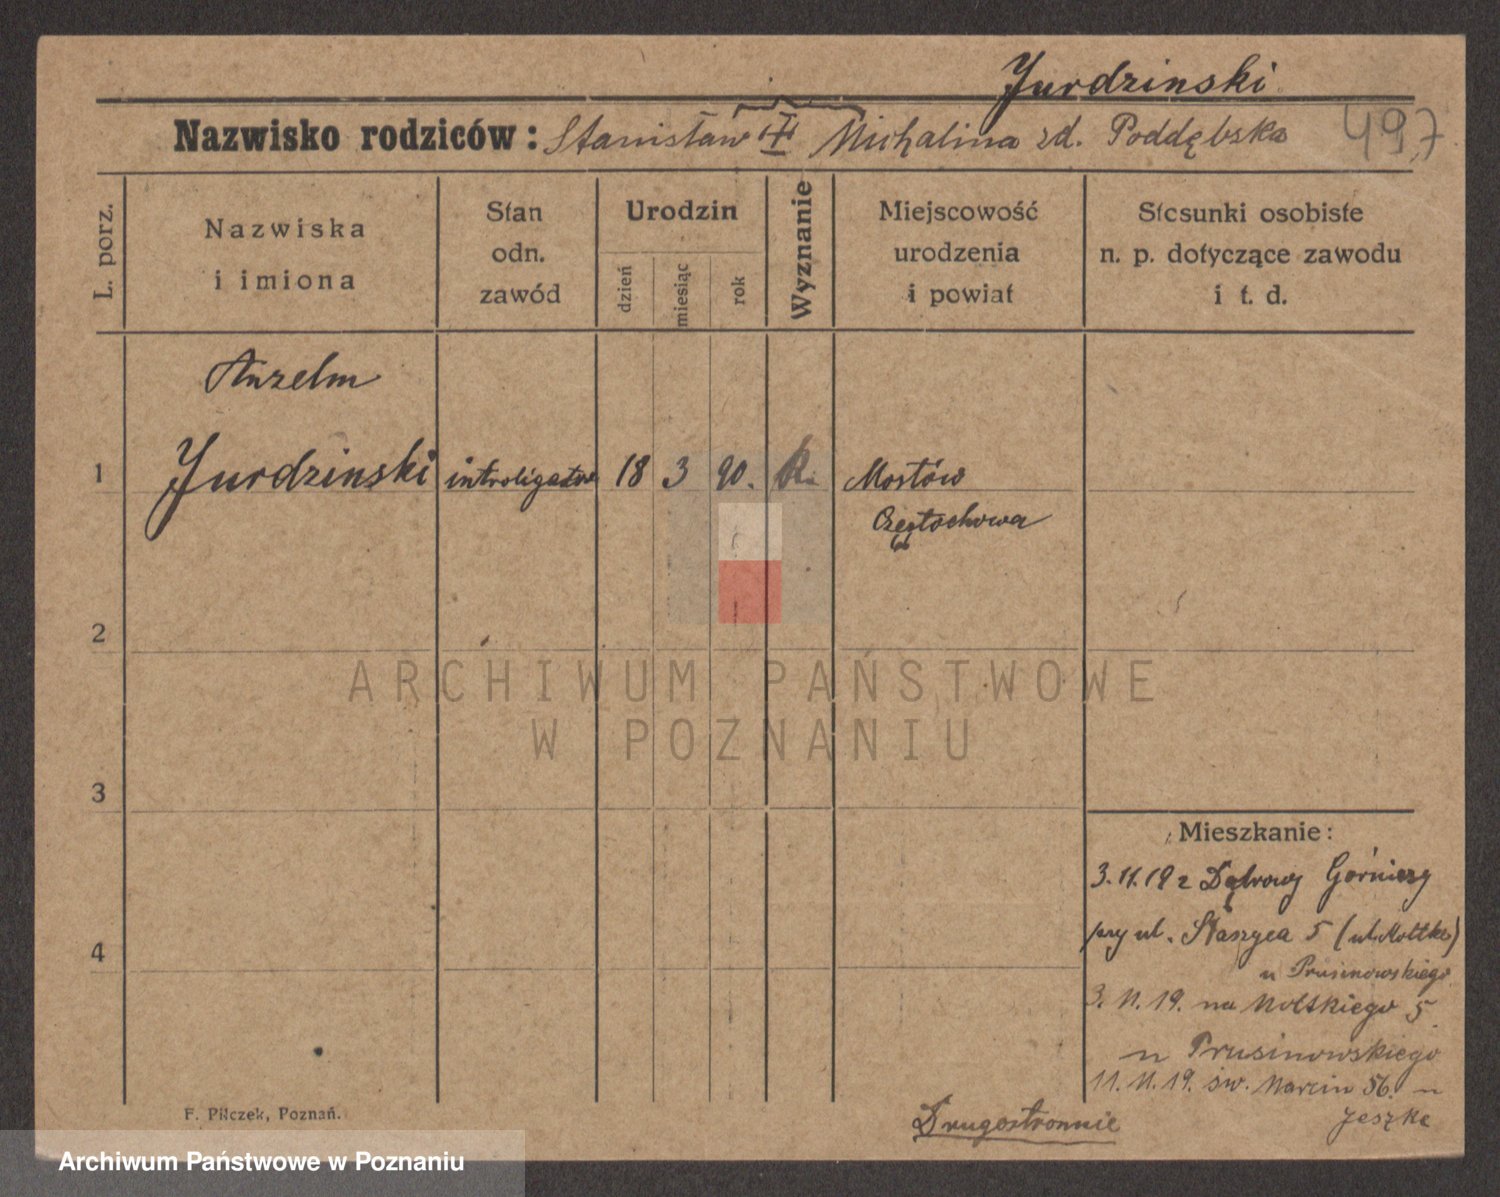 Jurdzinski
Nazwisko rodziców: Stanisław i Michalina zd. Poddębska 497
L. porz.
Nazwiska
i imiona
Stan
odn.
zawód
Urodzin
dzień
miesiąc
rok
Wyznanie
Miejscowość
urodzenia
i powiat
Stosunki osobiste
n. p. dotyczące zawodu
i t. d.
Anzelm
1 Jurdzinski introligator 18 3 90. k. Mostów
Częstochowa
2
ARCHIWUM PAŃSTWOWE
W POZNANIU
3
Mieszkanie:
3.11.19 z Dąbrowy Górniczy
4
przy ul. Staszyca 5 (ul. Moltke)
u Prusinowskiego
3. 11. 19. na Moltkiego 5
u Prusinowskiego
11. 11. 19. św. Marcin 56. u
Jeszke
Drugostronnie
F. Pilczek, Poznań.
Archiwum Państwowe w Poznaniu